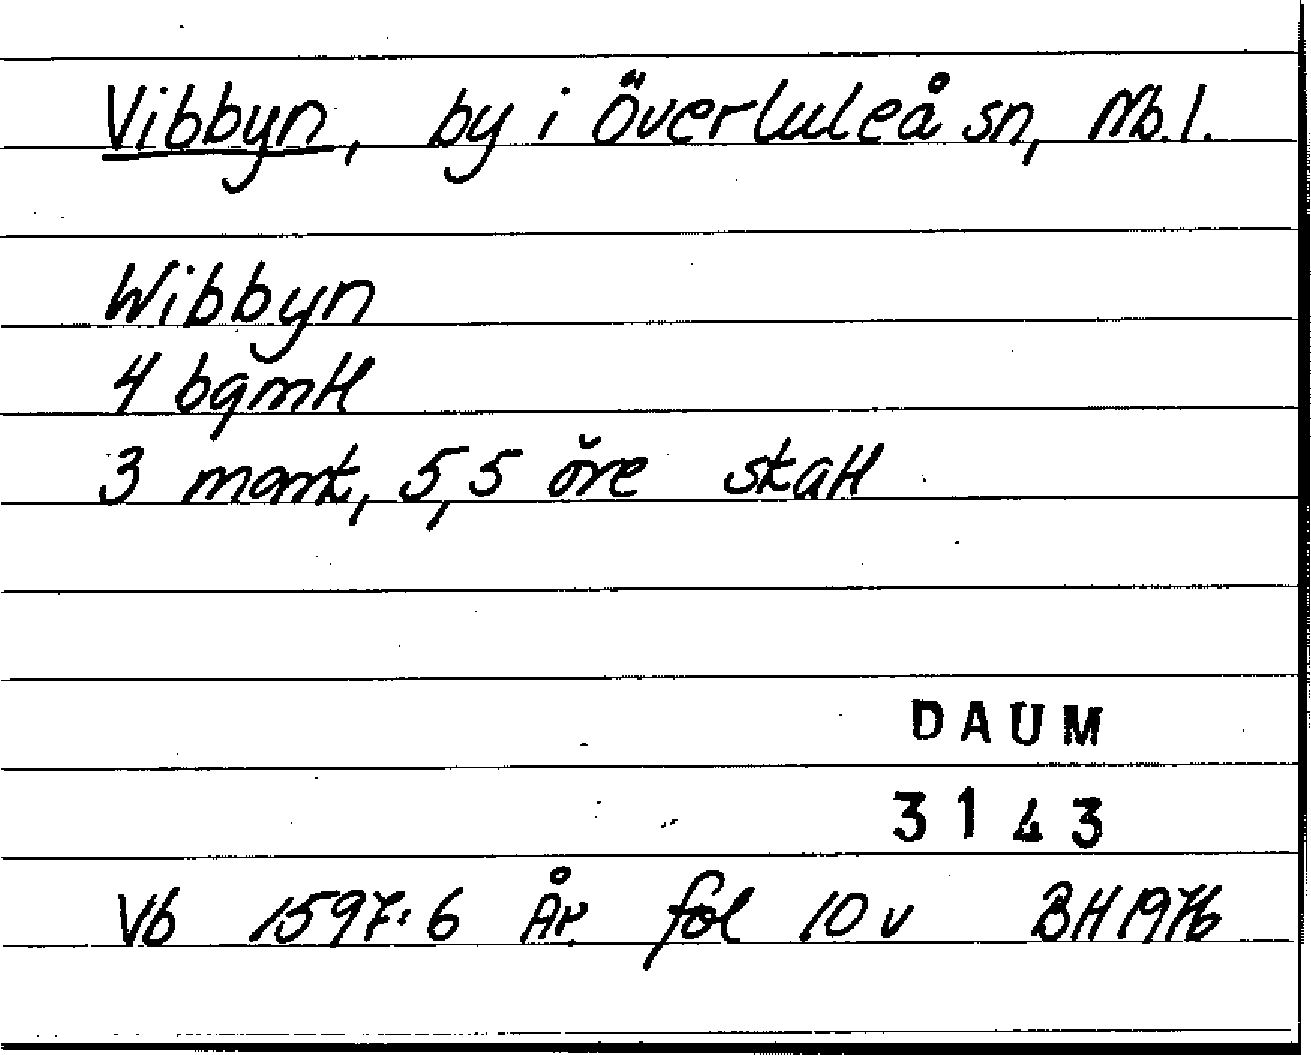 Vibbyn, by i Överluleå sn, Nb.l.
Wibbyn
4 bgmtl
3 mark, 5,5 öre skatt
DAUM
3143
Vb 1597:6 År fol 10 v BH 1976